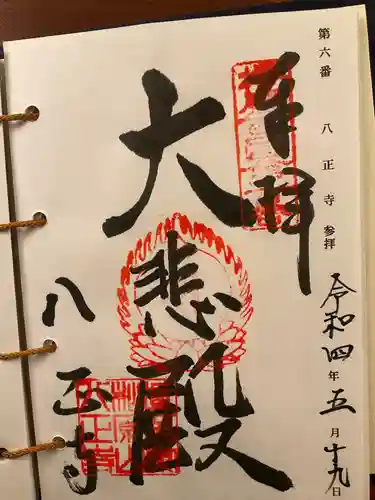 第六番 八正寺参拝
令和四年五月十九日
奉拝
大悲殿
八正寺